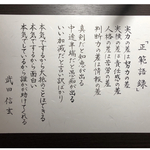 「正範語録」
実力の差は努力の差
実績の差は責任感の差
人格の差は苦労の差
判断力の差は情報の差
真剣だと知恵が出る
中途半端だと愚痴が出る
いい加減だと言い訳ばかり
本気でするから大抵のことはできる
本気でするから面白い
本気でしてるから誰かが助けてくれる
武田信玄